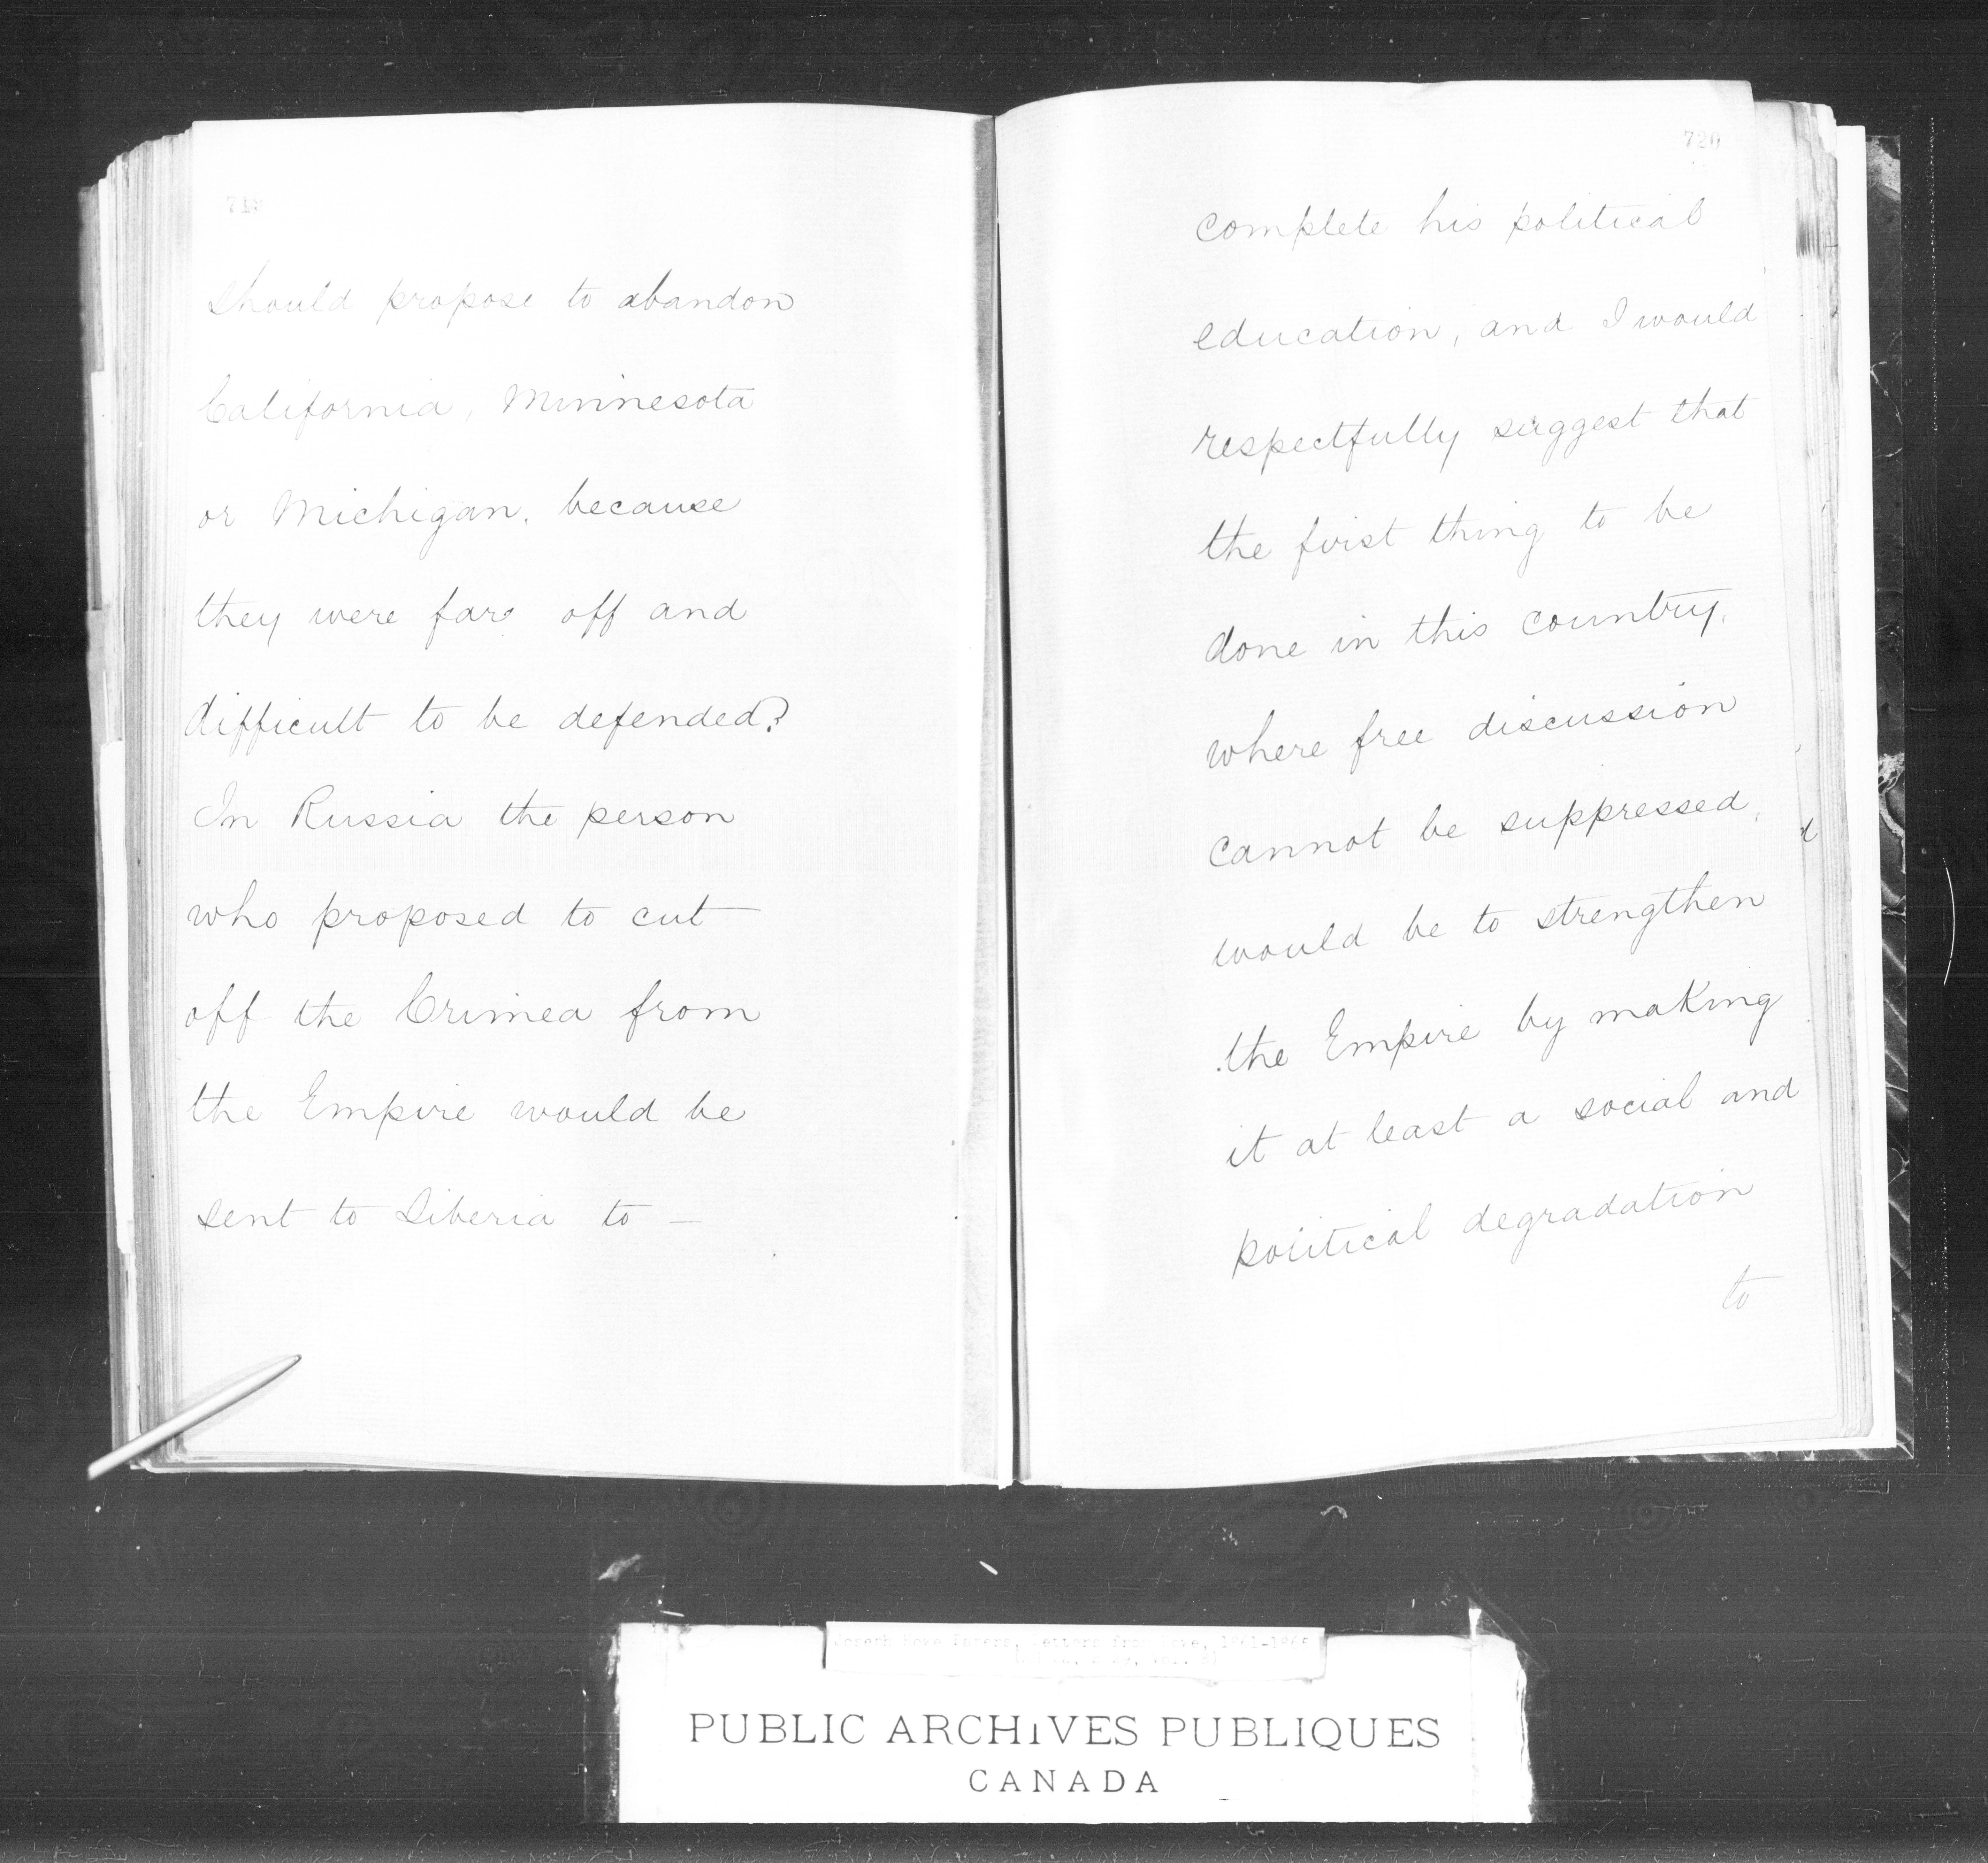 719
should propose to abandon
California, Minnesota
or Michigan, because
they were far off and
difficult to be defended?
In Russia the person
who proposed to cut
off the Crimea from
the Empire would be
sent to Siberia to —
720
complete his political
education, and I would
respectfully suggest that
the first thing to be
done in this country,
where free discussion
cannot be suppressed,
would be to strengthen
the Empire by making
it at least a social and
political degradation
to
d
Joseph Howe Papers, Letters from Howe, 1861-1865
PUBLIC ARCHIVES PUBLIQUES
CANADA